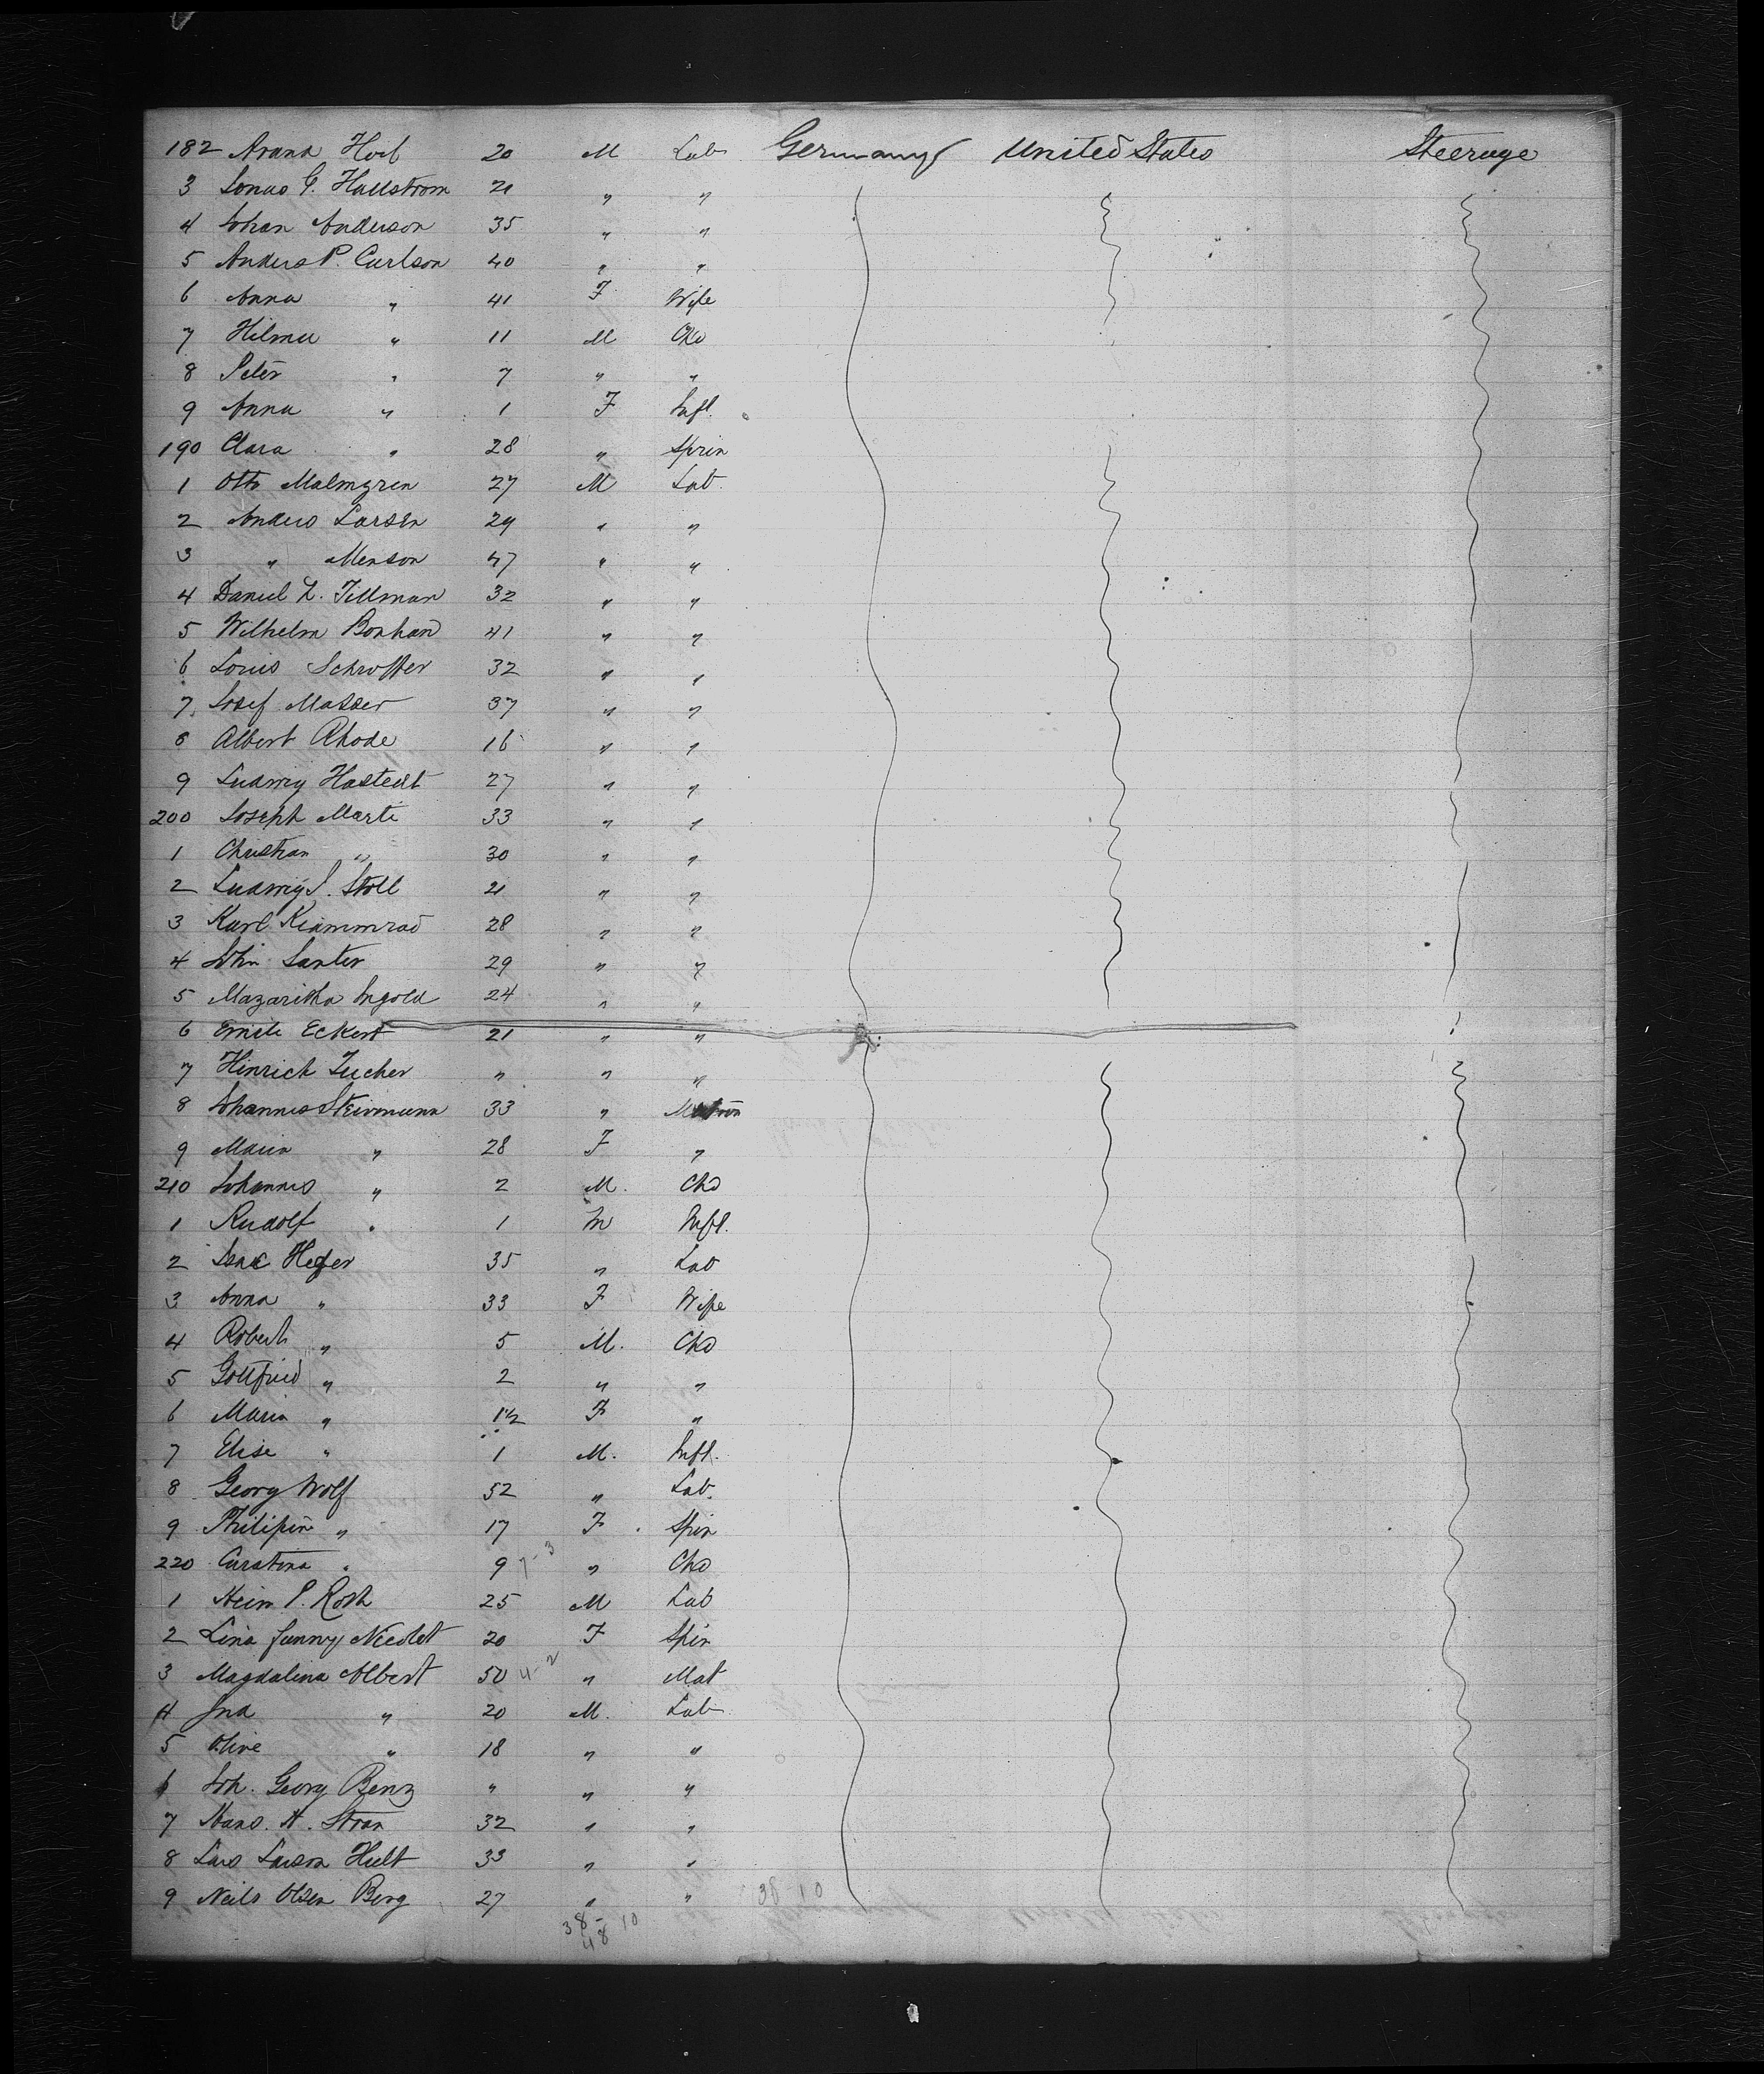 182 Arana Hoel 20 M Lab Germany United States Steerage
3 Jonas G. Hallstrom 21 " "
4 Johan Anderson 35 " "
5 Anders P. Carlson 40 " "
6 Anna " 41 F Wife
7 Hilma " 11 M Chd
8 Peter " 7 " "
9 Anna " 1 F Inft.
190 Clara " 28 " Sprin
1 Otto Malmgren 27 M Lab.
2 Anders Larsen 29 " "
3 " Menson 47 " "
4 Daniel L. Tillman 32 " "
5 Wilhelm Bonhard 41 " "
6 Louis Schroffer 32 " "
7 Josef Masser 37 " "
8 Albert Rhode 16 " "
9 Ludwig Hastedt 27 " "
200 Joseph Marti 33 " "
1 Christian " 30 " "
2 Ludwig J. Stoll 21 " "
3 Karl Kiammrad 28 " "
4 John Santer 29 " "
5 Mazaritha Ingold 24 " "
6 Emile Eckert 21 " "
7 Hinrich Zucher " " "
8 Johannes Steinmann 33 "
9 Maria " 28 F "
210 Johannes " 2 M. Chd
1 Rudolf " 1 M Inft.
2 Isaac Heger 35 " Lab
3 Anna " 33 F Wife
4 Robert " 5 M. Chd
5 Gottfried " 2 " "
6 Maria " 1½ F "
7 Elise " 1 M. Inft.
8 Georg Wolf 52 " Lab.
9 Philipin " 17 F. Spin
220 Carstina " 9 7-3 " Chd
1 Hein P. Roth 25 M Lab
2 Lina Fanny Niedlt 20 F Spin
3 Magdalina Albert 50 4-2 " Mat
4 Jna " 20 M. Lab
5 Olive " 18 " "
6 Joh. Georg Benz " " "
7 Hans. A. Stran 32 " "
8 Lars Larson Hult 33 " "
9 Neils Olsen Berg 27 " " 38 10
38-10
48